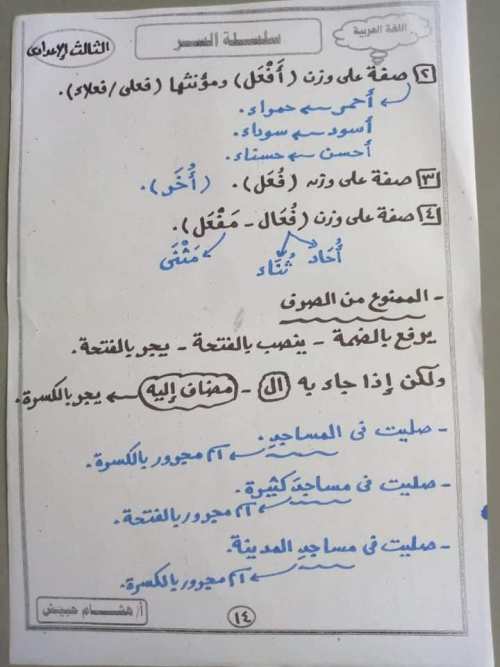 اللغة العربية
سلسلة السر
الثالث الإعدادى
٢ صفة على وزن (أَفْعَل) ومؤنثها (فعلى/فعلاء).
أحمر ← حمراء.
أسود ← سوداء.
أحسن ← حسناء.
٣ صفة على وزن (فُعَل). (أُخَر).
٤ صفة على وزن (فُعَال - مَفْعَل).
أُحَاد ثُنَاء مَثْنَى
- الممنوع من الصرف
يرفع بالضمة - ينصب بالفتحة - يجر بالفتحة.
ولكن إذا جاء به ال - مضاف إليه ← يجر بالكسرة.
- صليت فى المساجدِ.
← اسم مجرور بالكسرة.
- صليت فى مساجدَ كثيرة.
← اسم مجرور بالفتحة.
- صليت فى مساجدِ المدينة.
← اسم مجرور بالكسرة.
١٤
أ/ هشام حبيش